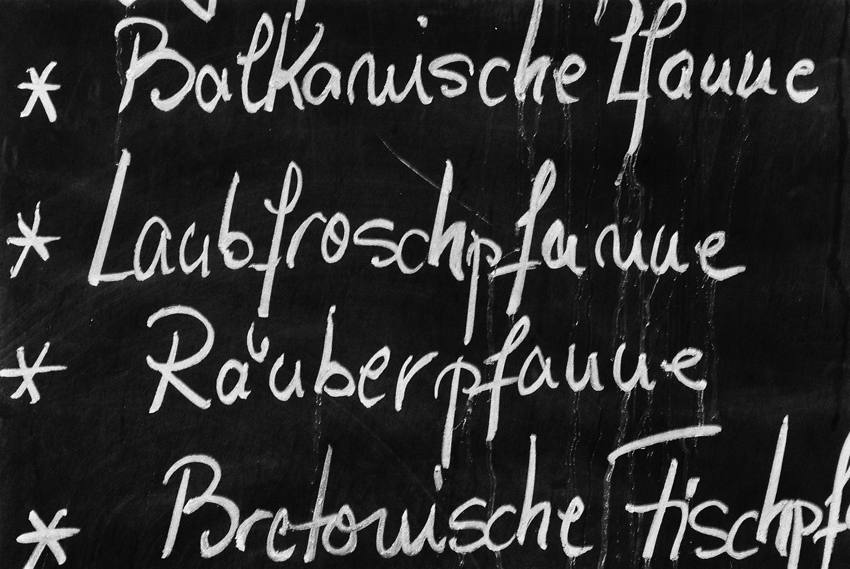 * Balkanische Pfanne
* Laubfroschpfanne
* Räuberpfanne
* Bretonische Fischpf